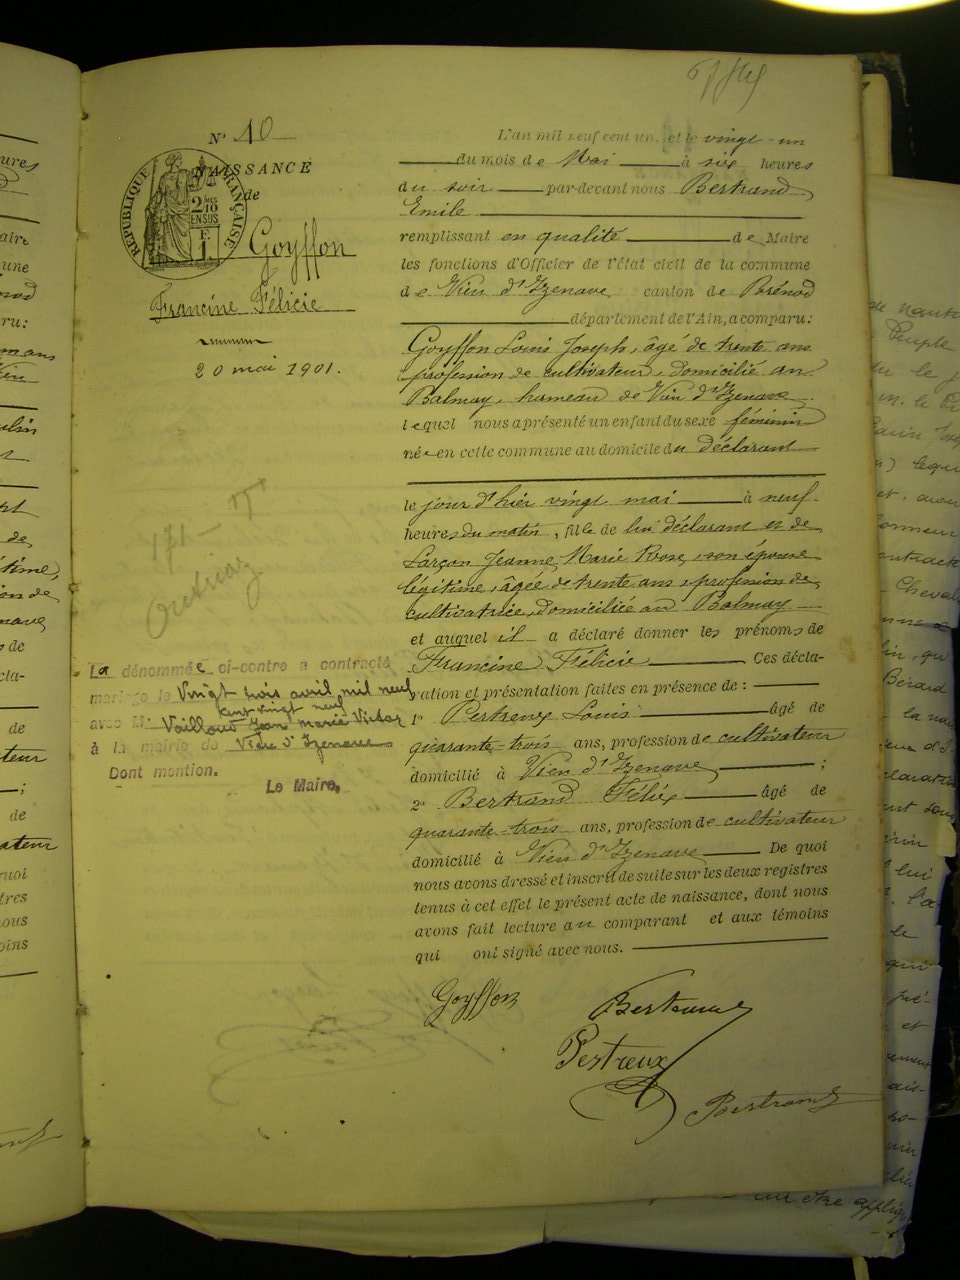 N° 10
NAISSANCE
de
RÉPUBLIQUE FRANÇAISE
2 MES
10
EN SUS
Goyffon
Francine Félicie
20 mai 1901.
La dénommée ci-contre a contracté
mariage le vingt trois avril mil neuf
cent vingt neuf
avec M. Vailloud Jean Marie Victor
à la mairie de Vieu d'Izenave
Dont mention.
Le Maire,
L'an mil neuf cent un, et le vingt-un
du mois de Mai à six heures
du soir par-devant nous Bertrand
Emile
remplissant en qualité de Maire
les fonctions d'Officier de l'État civil de la commune
de Vieu d'Izenave canton de Brénod
département de l'Ain, a comparu:
Goyffon Louis Joseph, âgé de trente ans
profession de cultivateur, domicilié au
Balmay, hameau de Vieu d'Izenave
lequel nous a présenté un enfant du sexe féminin
née en cette commune au domicile du déclarant
le jour d'hier vingt mai à neuf
heures du matin, fille de lui déclarant et de
Larçon Jeanne Marie Rose, son épouse
légitime, âgée de trente ans, profession de
cultivatrice, domiciliée au Balmay
et auquel il a déclaré donner les prénoms de
Francine Félicie Ces décla-
ration et présentation faites en présence de :
1° Pertreux Louis âgé de
quarante-trois ans, profession de cultivateur
domicilié à Vieu d'Izenave ;
2° Bertrand Félix âgé de
quarante-trois ans, profession de cultivateur
domicilié à Vieu d'Izenave De quoi
nous avons dressé et inscrit de suite sur les deux registres
tenus à cet effet le présent acte de naissance, dont nous
avons fait lecture au comparant et aux témoins
qui ont signé avec nous.
Goyffon
Bertrand
Pertreux
Bertrand